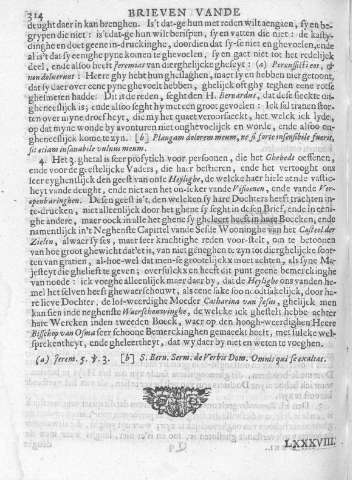 314 BRIEVEN VANDE
deught daer in kan brenghen. Is't dat-ge hun met reden wilt aengaen, sy en be-
grypen die niet: is't dat-ge hun wilt berispen, sy en vatten die niet: de kasty-
dinghe en doet geene in-druckinghe, doordien dat sy-se niet en ghevoelen, ende
al is't dat sy eenighe pyne komen te ghevoelen, sy en gaet niet tot het redelijck
deel, ende alsoo heeft Jeremias van dierghelijcke gheseyt: (a) Percussisti eos, &
non doluerunt: Heere ghy hebt hun gheslaghen, maer sy en hebben niet getoont,
dat sy daer over eene pyne ghevoelt hebben, ghelijck oft ghy teghen eene rotse
ghesmeten hadde: Dit is de reden, seght den H. Bernardus, dat dese sieckte on-
gheneeselijck is; ende alsoo seght hy met een groot gevoelen: Ick sal tranen stor-
ten over myne droefheyt, die my het quaet veroorsaeckt, het welck ick lyde,
op dat myne wonde by avonturen niet onghevoelijck en worde, ende alsoo on-
gheneeselijck kome te zyn. [b] Plangam dolorem meum, ne si forte insensibile fuerit,
sic etiam insanabile vulnus meum.
4. Het 3. ghetal is seer profytich voor persoonen, die het Ghebedt oeffenen,
ende voor de geestelijcke Vaders, die haer bestieren, ende het vertooght ons
seer eyghentlijck den geest van onse Heylighe, de welcke haer hiele ende vastig-
heyt vande deught, ende niet aen het on-seker vande Visioenen, ende vande Ver-
openbaringhen. Desen geest is't, den welcken sy hare Dochters heeft trachten in-
te-drucken, niet alleenlijck door het ghene sy seght in desen Brief, ende in eeni-
ghe andere, maer noch door het ghene sy gheleert heeft in hare Boecken, ende
namentlijck in't Neghenste Capittel vande Seste Wooninghe van het Casteel der
Zielen, alwaer sy ses, maer seer krachtighe reden voor-stelt, om te betoonen
van hoe groot ghewicht dat het is, van niet gheneghen te zyn tot dierghelijcke soor-
ten van gratien; al-hoe-wel dat men-se grootelijckx moet achten, als syne Ma-
jesteyt die ghelieft te geven; oversulckx en heeft dit punt geene bemerckinghe
van noode: ick voeghe alleenlijck maer daer by, dat de Heylighe ons vanden he-
mel het selven heeft ghewaerschouwt, als eene sake soo nootsakelijck, door ha-
re lieve Dochter de lof-weerdighe Moeder Catharina van Jesus, ghelijck men
kan sien inde neghenste Waerschouwinghe, de welcke ick ghestelt hebbe achter
hare Wercken inden tweeden Boeck, waer op den hoogh-weerdighen Heere
Bisschop van Osma seer schoone Bemerckinghen gemaeckt heeft, met sulcke wel-
sprekentheyt, ende gheleertheyt, dat wy daer by niet en weten te voeghen.
(a) Jerem. 5. ℣. 3. [b] S. Bern. Serm. de Verbis Dom. Omnis qui se exaltat.
LXXXVIII.